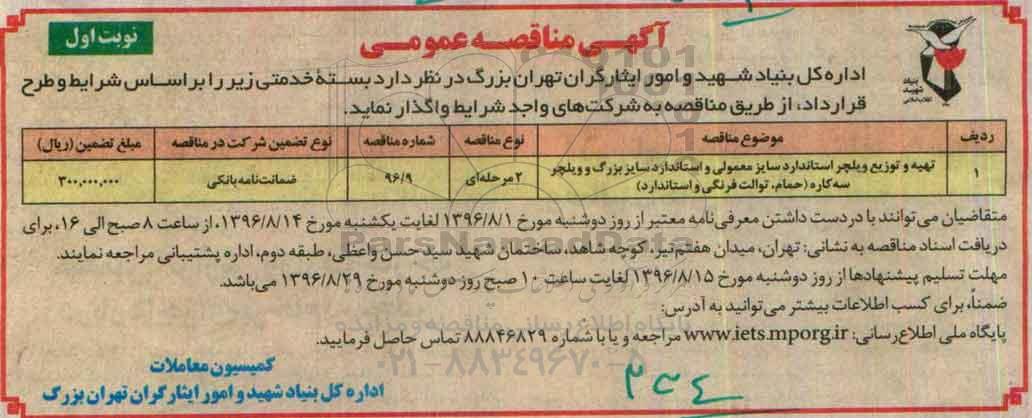 نوبت اول
آگهی مناقصه عمومی
بنیاد شهید انقلاب اسلامی
اداره کل بنیاد شهید و امور ایثارگران تهران بزرگ در نظر دارد بستهٔ خدمتی زیر را بر اساس شرایط و طرح
قرارداد، از طریق مناقصه به شرکت‌های واجد شرایط واگذار نماید.
ردیف موضوع مناقصه نوع مناقصه شماره مناقصه نوع تضمین شرکت در مناقصه مبلغ تضمین (ریال)
۱ تهیه و توزیع ویلچر استاندارد سایز معمولی و استاندارد سایز بزرگ و ویلچر سه‌کاره (حمام، توالت فرنگی و استاندارد) ۲ مرحله‌ای ۹۶/۹ ضمانت‌نامه بانکی ۳۰۰,۰۰۰,۰۰۰
متقاضیان می‌توانند با در دست داشتن معرفی‌نامه معتبر از روز دوشنبه مورخ ۱۳۹۶/۸/۱ لغایت یکشنبه مورخ ۱۳۹۶/۸/۱۴، از ساعت ۸ صبح الی ۱۶، برای
دریافت اسناد مناقصه به نشانی: تهران، میدان هفتم‌تیر، کوچه شاهد، ساختمان شهید سید حسن واعظی، طبقه دوم، اداره پشتیبانی مراجعه نمایند.
مهلت تسلیم پیشنهادها از روز دوشنبه مورخ ۱۳۹۶/۸/۱۵ لغایت ساعت ۱۰ صبح روز دوشنبه مورخ ۱۳۹۶/۸/۲۹ می‌باشد.
ضمناً، برای کسب اطلاعات بیشتر می‌توانید به آدرس:
پایگاه ملی اطلاع‌رسانی: www.iets.mporg.ir مراجعه و یا با شماره ۸۸۸۴۶۸۲۹ تماس حاصل فرمایید.
کمیسیون معاملات
اداره کل بنیاد شهید و امور ایثارگران تهران بزرگ
ParsNamadData
پایگاه اطلاع رسانی مناقصه و مزایده
۰۲۱-۸۸۳۴۹۶۷۰-۵